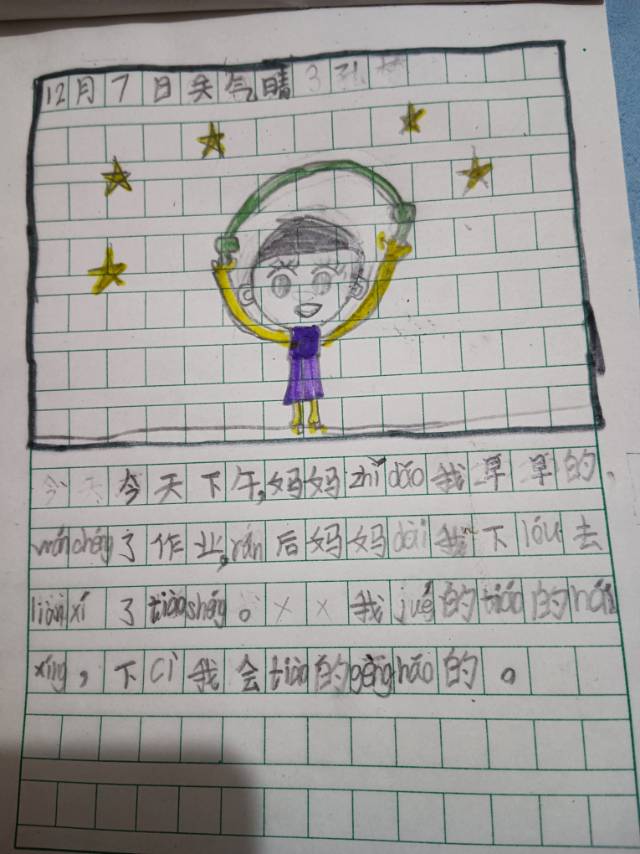 12月7日天气晴
今天今天下午,妈妈zhǐdǎo我早早的
wánchéng了作业,rán后妈妈dài我下lóu去
liànxí了tiàoshéng。××我jué的tiào的hái
xíng,下cì我会tiào的gènghǎo的。